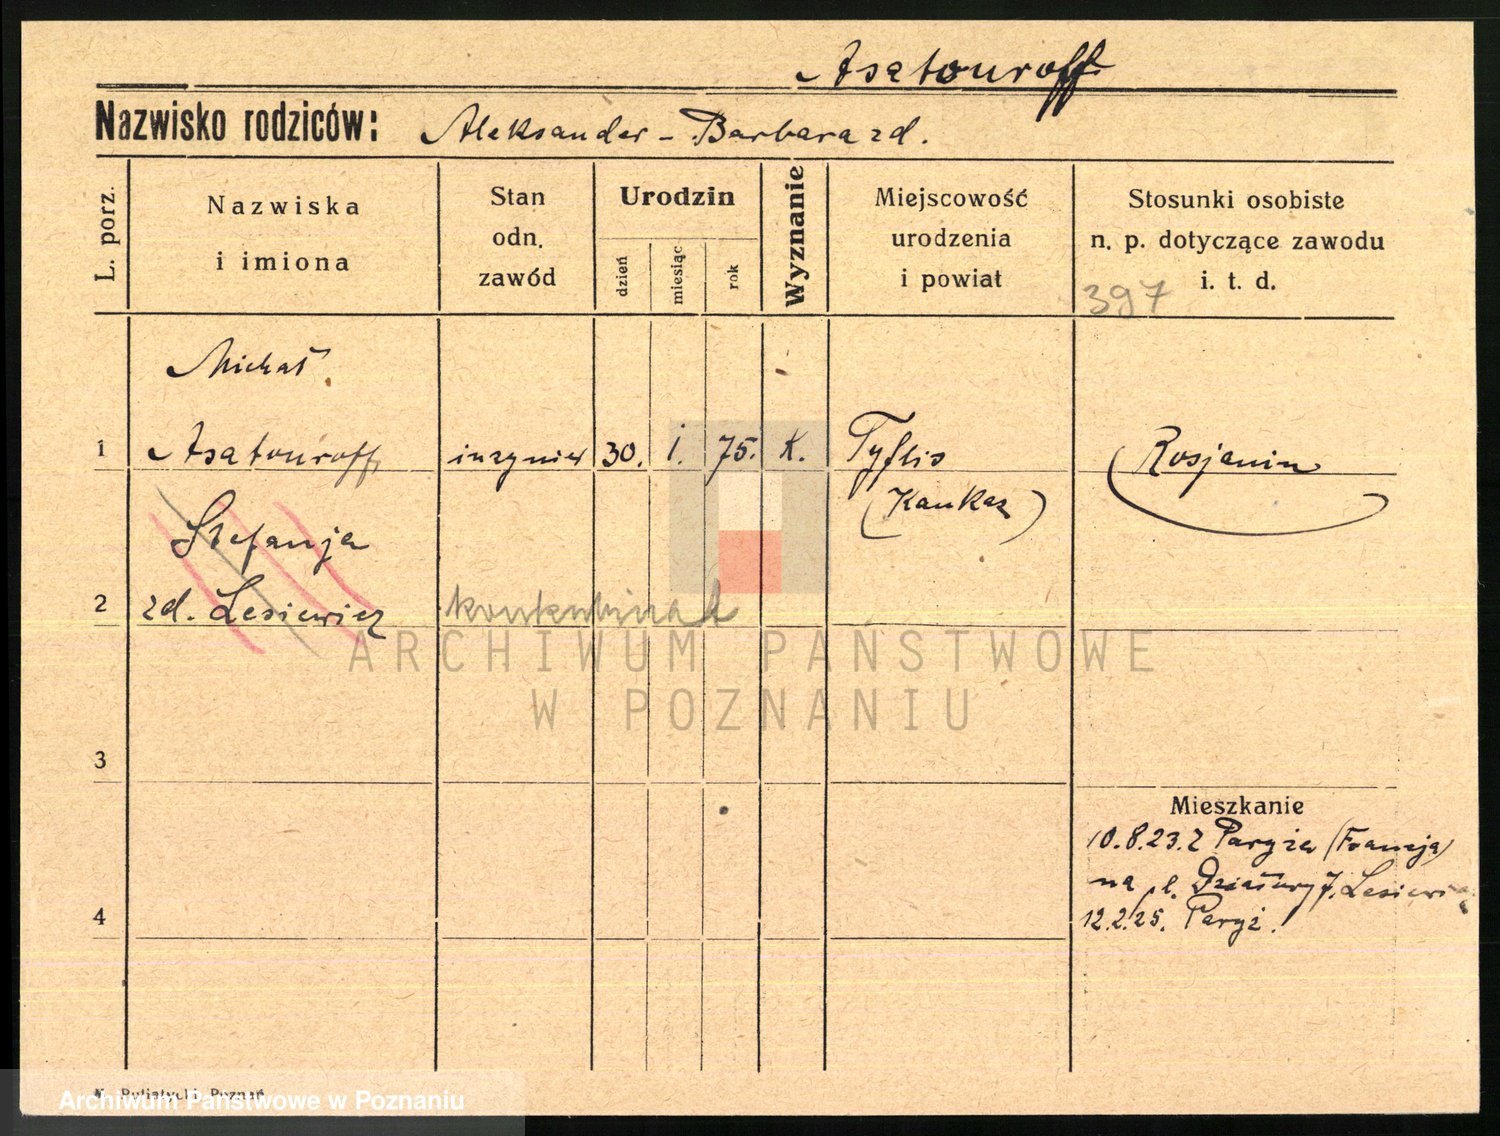 Asatouroff
Nazwisko rodziców: Aleksander - Barbara zd.
L. porz.
Nazwiska
i imiona
Stan
odn.
zawód
Urodzin
dzień
miesiąc
rok
Wyznanie
Miejscowość
urodzenia
i powiat
Stosunki osobiste
n. p. dotyczące zawodu
i. t. d.
397
Michał
1 Asatouroff inżynier 30. I. 75. K. Tyflis Rosjanin
(Kaukaz)
Stefanja
2 zd. Lesiewicz konkubina
ARCHIWUM PAŃSTWOWE
W POZNANIU
3
Mieszkanie
10.8.23. z Paryża (Francja)
na pl. Działowy 7.
4 12.2.25. Paryż.
Poznań
Archiwum Państwowe w Poznaniu